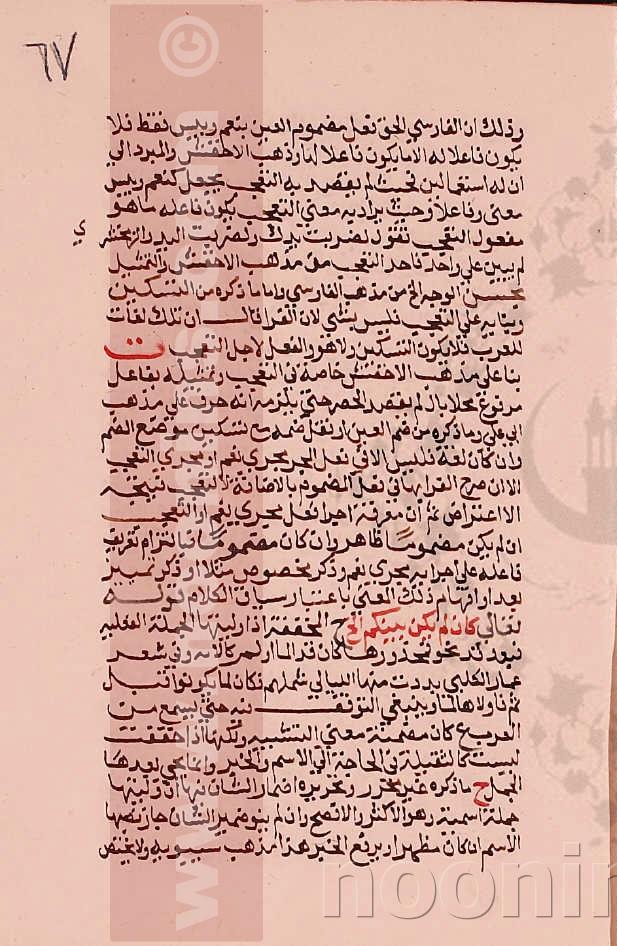 ٦٧
وذلك ان الفارسي الحق نعل مضموم العين بنعم وبيس فقط فلا
يكون فاعلا له الا ما يكون فاعلا لها وذهب الاخفش والمبرد الى
ان له استعمالين فحيث لم يقصد به التعجب يجعل كنعم وبيس
معنى وفاعلا وحيث يراد به معنى التعجب يكون فاعله ما هو
مفعول التعجب تقول لضربت يدك ولضربت اليد والزمخشر
ي
لم يبين على واحد فاخذ التعجب من مذهب الاخفش والتمثيل
بحسن الوجه الخ من مذهب الفارسي واما ما ذكره من التسكين
وبنايه على التعجب فليس بشي لان الفرا قال ان تلك لغات
للعرب فلا يكون التسكين ولا هو والفعل لاجل التعجب ت
بنا على مذهب الاخفش خاصة في التعجب وتمثيله بفاعل
مرفوع محلا باذ لم يقصد الحصر حتى يلزمه انه حرف على مذهب
ابي علي وما ذكره من ضم العين او نقل ضمه مع تسكين موضع الضم
وان كان لغة فليس الا في فعل المجرى مجرى نعم او مجرى التعجب
الا ان صرح الفرا بها في نعل المضموم بالاصالة لا التعجب فيتجه
الاعتراض ثم ان معرفة اجرا فعل مجرى نعم او التعجب
ان لم يكن مضموما ظاهر وان كان مضموما فبالتزام تعريف
فاعله على اجرايه مجرى نعم وذكر مخصوص مثلا او ذكر تمييز
بعد او ابهام ذلك المعنى باعتبار سياق الكلام قوله
تعالى كان لم يكن بينكم الخ ح المخففة اذا وليتها الجملة الفعلية
فبعد قد نحو وزرها كان قد الما او لم كالاية وفي شعر
عمار الكلبي بددت منها الليالي شملهم فكان لما يكونوا قبل
ثم فاولاها لما وينبغي التوقف فيه حتى يسمع من
العرب ع كان مضمنة معنى التشبيه ولكنها اذا خففت
ليست كالثقيلة في الحاجة الى الاسم والخبر وانما تجي بعدها
الجمل ح ما ذكره غير محرر وتحريره اضمار الشان فيها ان وليتها
جملة اسمية وهو الاكثر والافصح وان لم ينو ضمير الشان جاز نصبها
الاسم ان كان مظهرا ويرفع الخبر هذا مذهب سيبويه ولا يختص
www.
noonin